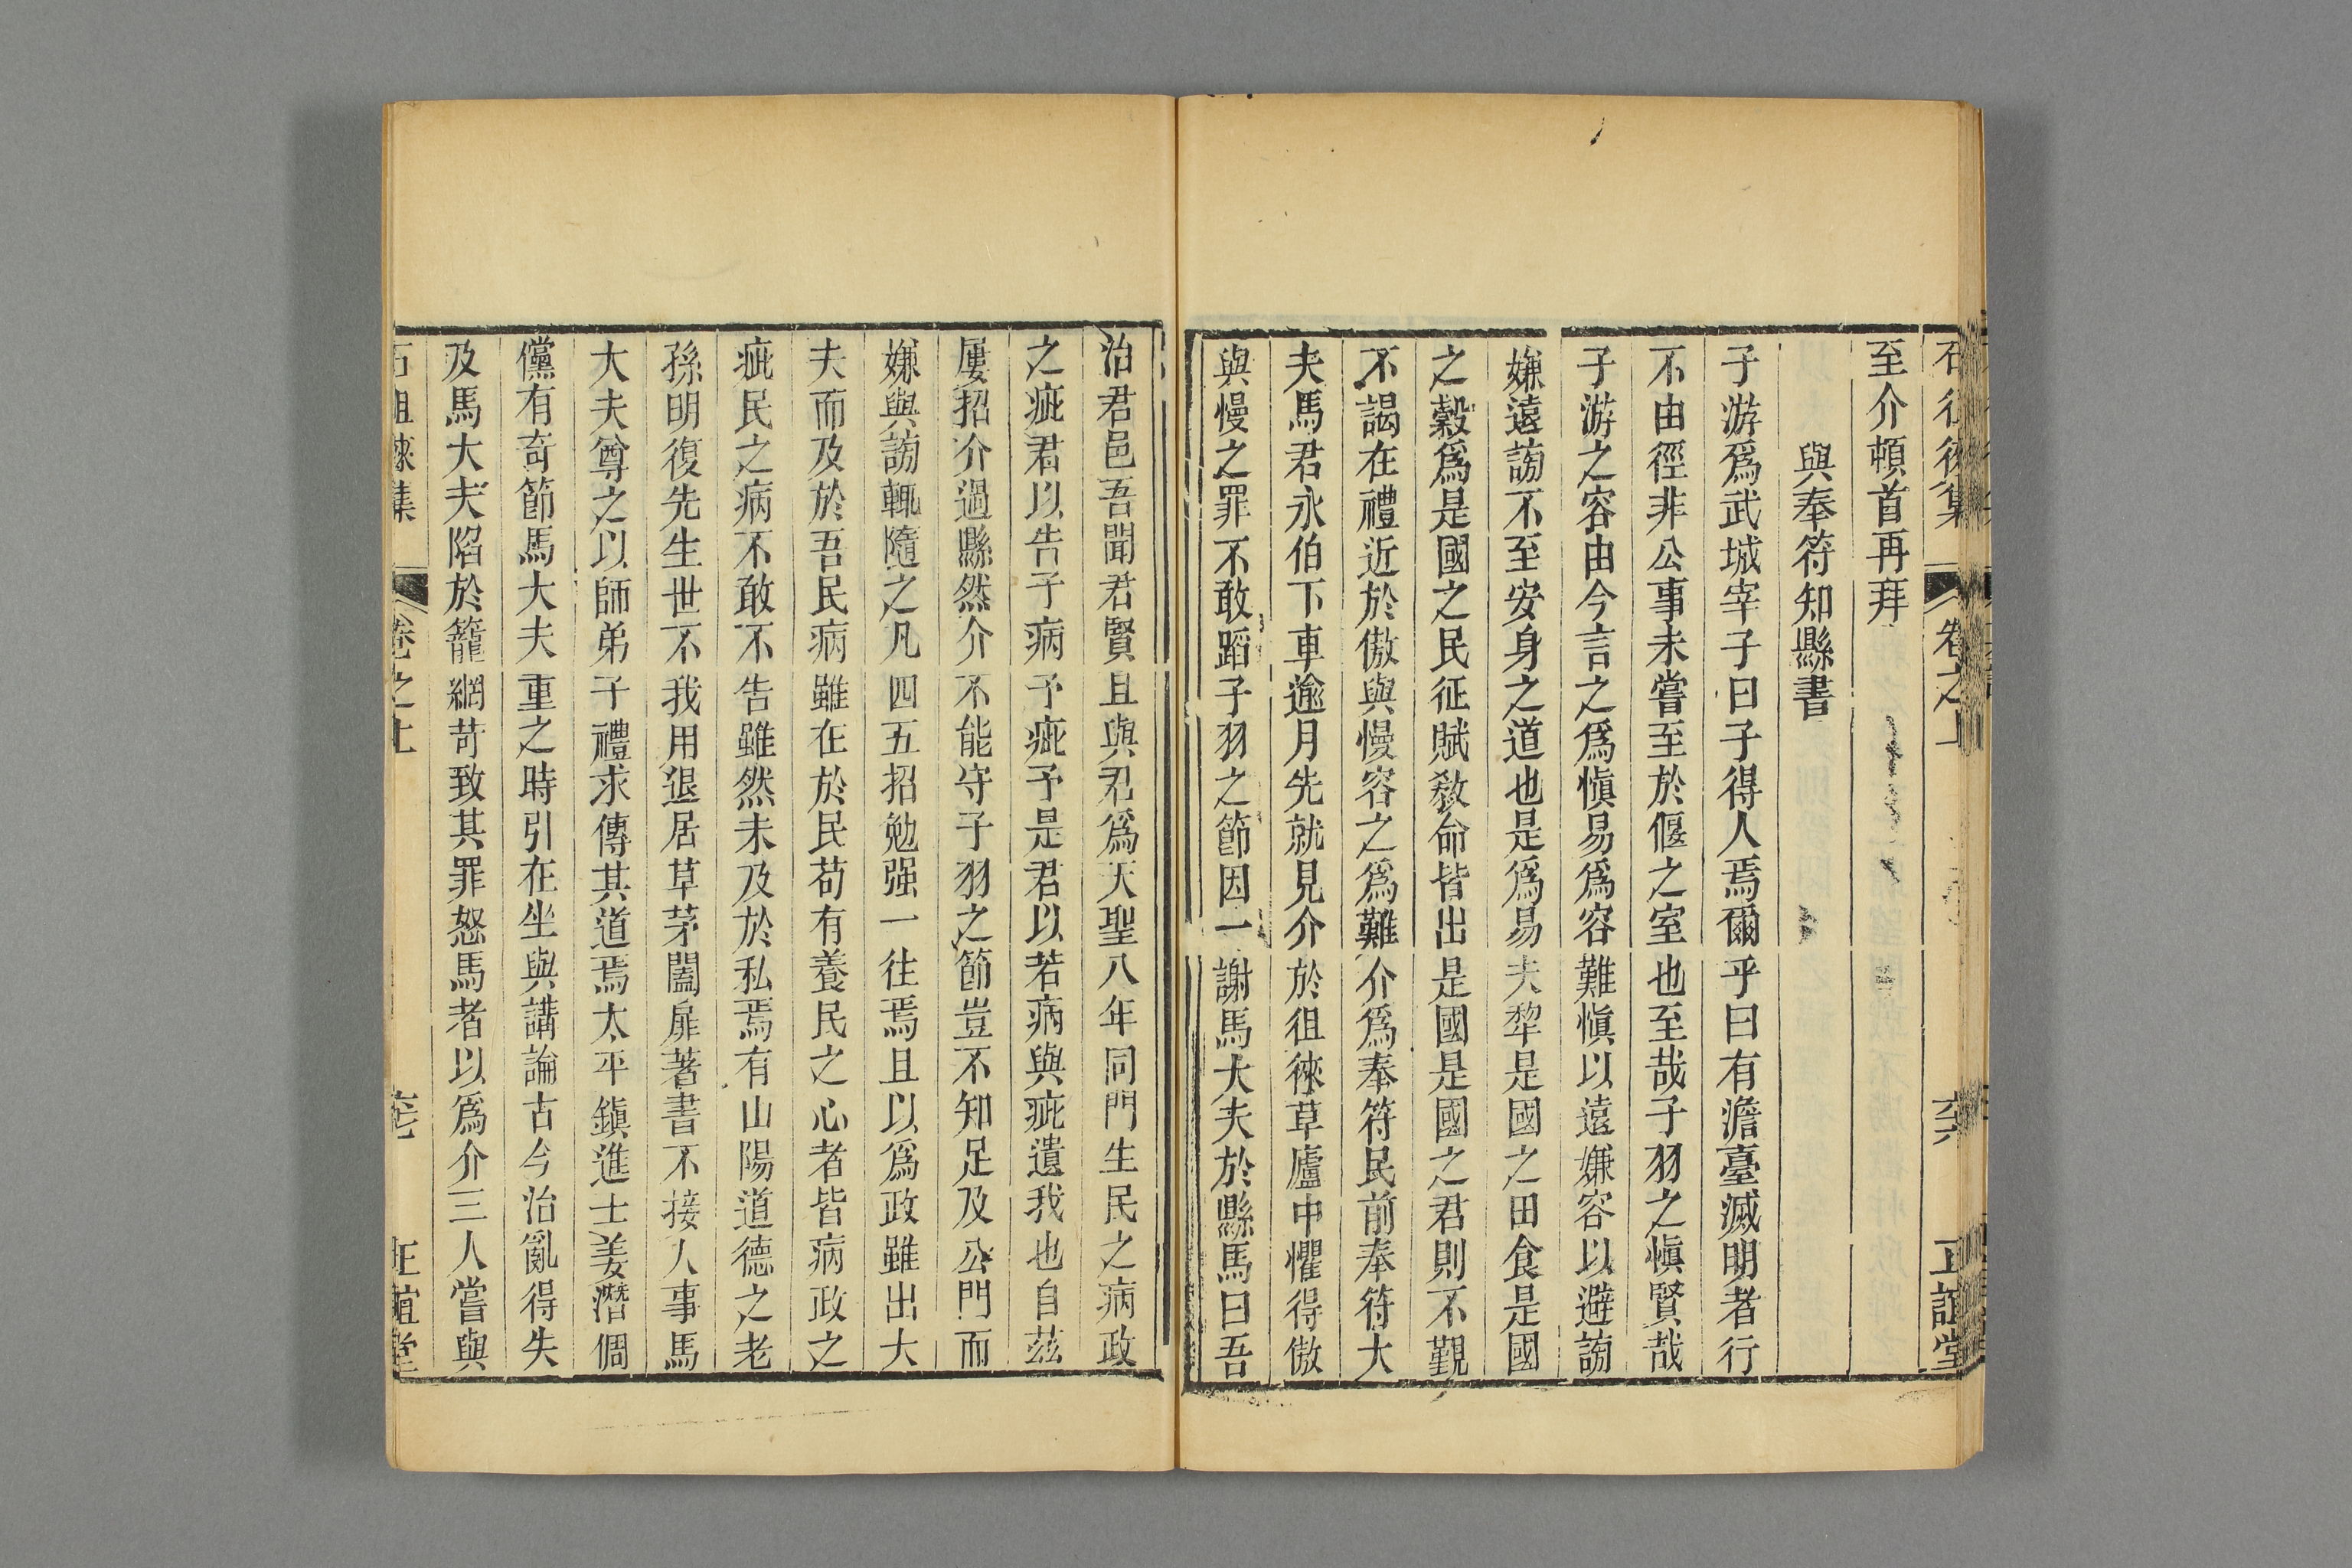 石徂徠集 卷之上 六六 正誼堂
至介頓首再拜
與奉符知縣書
子游爲武城宰子曰子得人焉爾乎曰有澹臺滅明者行
不由徑非公事未嘗至於偃之室也至哉子羽之愼賢哉
子游之容由今言之爲愼易爲容難愼以遠嫌容以避謗
嫌遠謗不至安身之道也是爲易夫犂是國之田食是國
之穀爲是國之民征賦敎命皆出是國是國之君則不覲
不謁在禮近於傲與慢容之爲難介爲奉符民前奉符大
夫馬君永伯下車逾月先就見介於徂徠草廬中懼得傲
與慢之罪不敢蹈子羽之節因一謝馬大夫於縣馬曰吾
治君邑吾聞君賢且與君爲天聖八年同門生民之病政
之疵君以告予病予疵予是君以若病與疵遺我也自茲
屢招介過縣然介不能守子羽之節豈不知足及公門而
嫌與謗輒隨之凡四五招勉强一往焉且以爲政雖出大
夫而及於吾民病雖在於民苟有養民之心者皆病政之
疵民之病不敢不告雖然未及於私焉有山陽道德之老
孫明復先生世不我用退居草茅闔扉著書不接人事馬
大夫尊之以師弟子禮求傳其道焉太平鎭進士姜潛倜
儻有奇節馬大夫重之時引在坐與講論古今治亂得失
及馬大夫陷於籠網苛致其罪怒馬者以爲介三人嘗與
石徂徠集 卷之上 六七 正誼堂